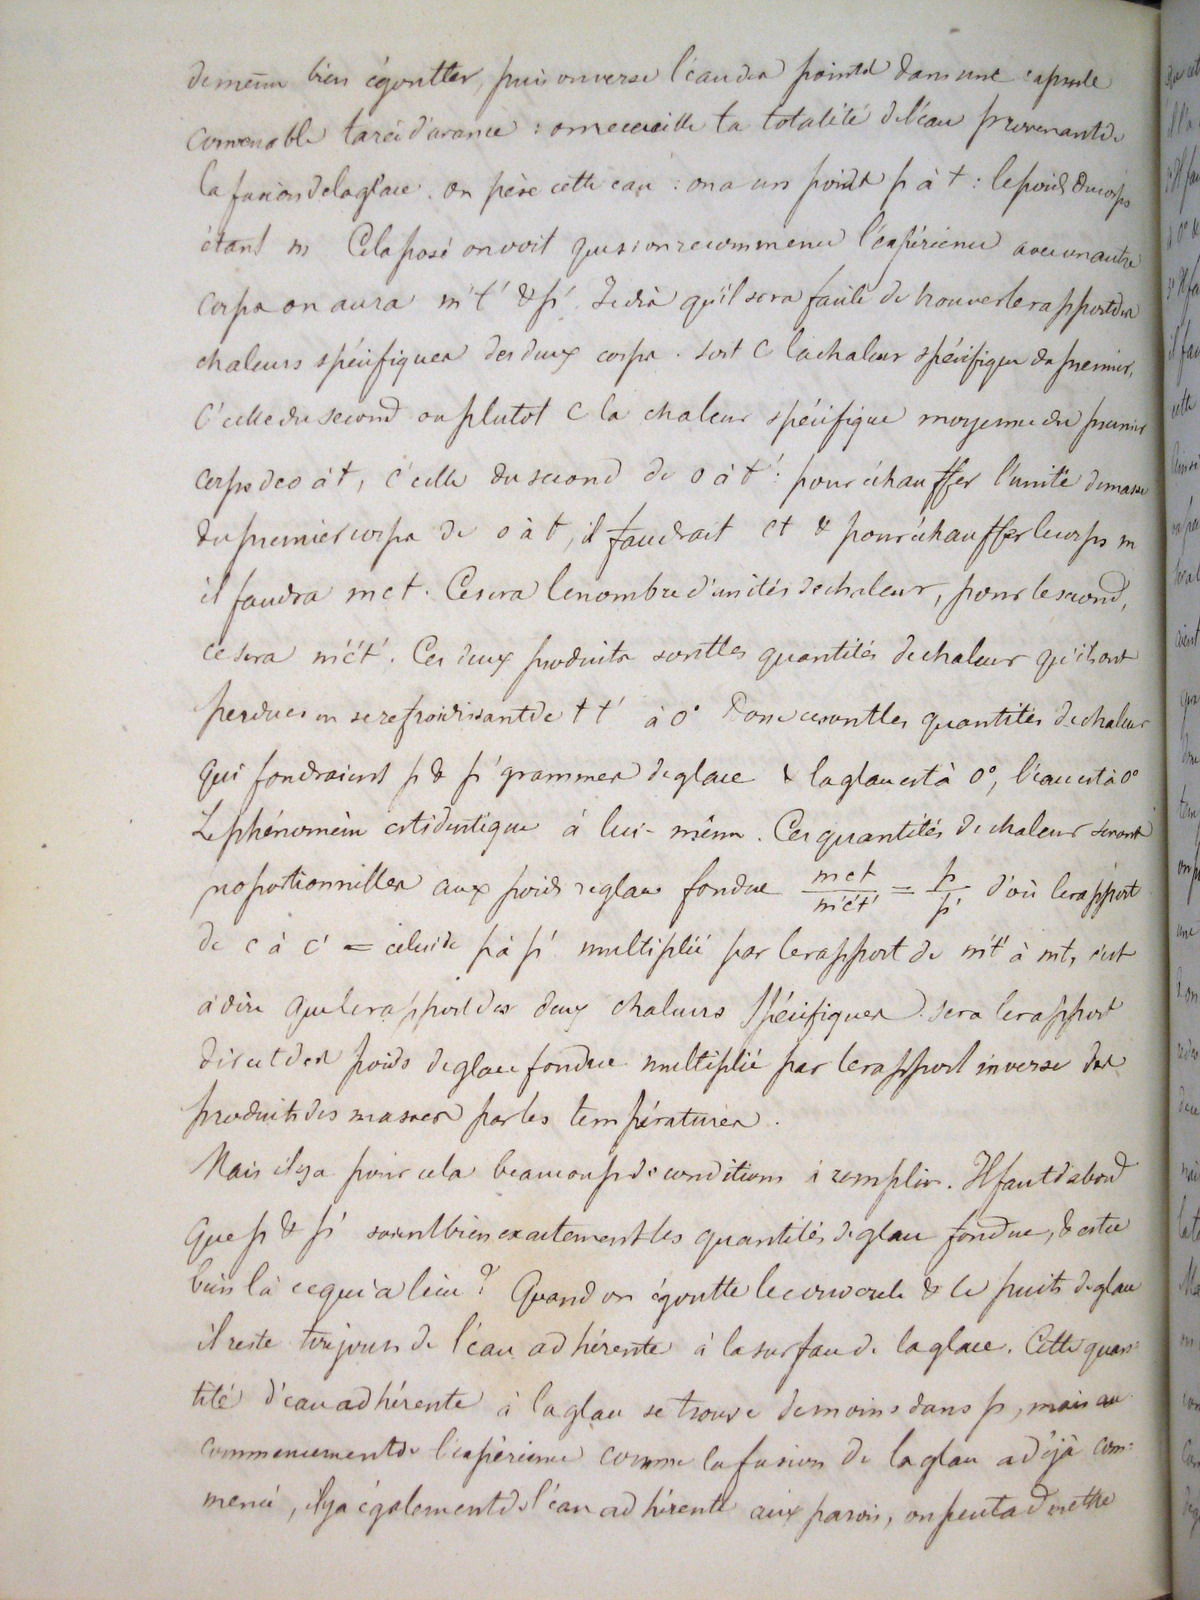 de même bien égoutter, puis on verse l'eau du puits dans une capsule
convenable tarée d'avance : on recueille la totalité de l'eau provenant de
la fusion de la glace. on pèse cette eau : on a un poids p à t : le poids du corps
étant m Cela posé on voit que si on recommence l'expérience avec un autre
corps on aura m' t' & p'. Je dis qu'il sera facile de trouver le rapport des
chaleurs spécifiques des deux corps. soit C la chaleur spécifique du premier,
C' celle du second ou plutot C la chaleur spécifique moyenne du premier
corps de 0 à t, c' celle du second de 0 à t' : pour échauffer l'unité de masse
du premier corps de 0 à t, il faudrait ct & pour échauffer le corps m
il faudra mct. Ce sera le nombre d'unités de chaleur, pour le second,
ce sera m'c't'. Ces deux produits sont les quantités de chaleur qu'ils ont
perdues en se refroidissant de t t' à 0° Donc ce sont les quantités de chaleur
qui fondraient p & p' grammes de glace & la glace est à 0°, l'eau est à 0°
Le phénomène est identique à lui-même. Ces quantités de chaleur seront
proportionnelles aux poids de glace fondue mct/m'c't' = p/p' d'où le rapport
de c à c' = celui de p à p' multiplié par le rapport de m't' à mt, c'est
à dire que le rapport des deux chaleurs spécifiques sera le rapport
direct des poids de glace fondue multiplié par le rapport inverse des
produits des masses par les températures.
Mais il y a pour cela beaucoup de conditions à remplir. Il faut d'abord
que p & p' soient bien exactement les quantités de glace fondue, & est ce
bien là ce qui a lieu ? Quand on égoutte le couvercle & le puits de glace
il reste toujours de l'eau adhérente à la surface de la glace. Cette quan=
tité d'eau adhérente à la glace se trouve de moins dans p, mais au
commencement de l'expérience comme la fusion de la glace a déjà com=
mencé, il y a également de l'eau adhérente aux parois, on peut admettre